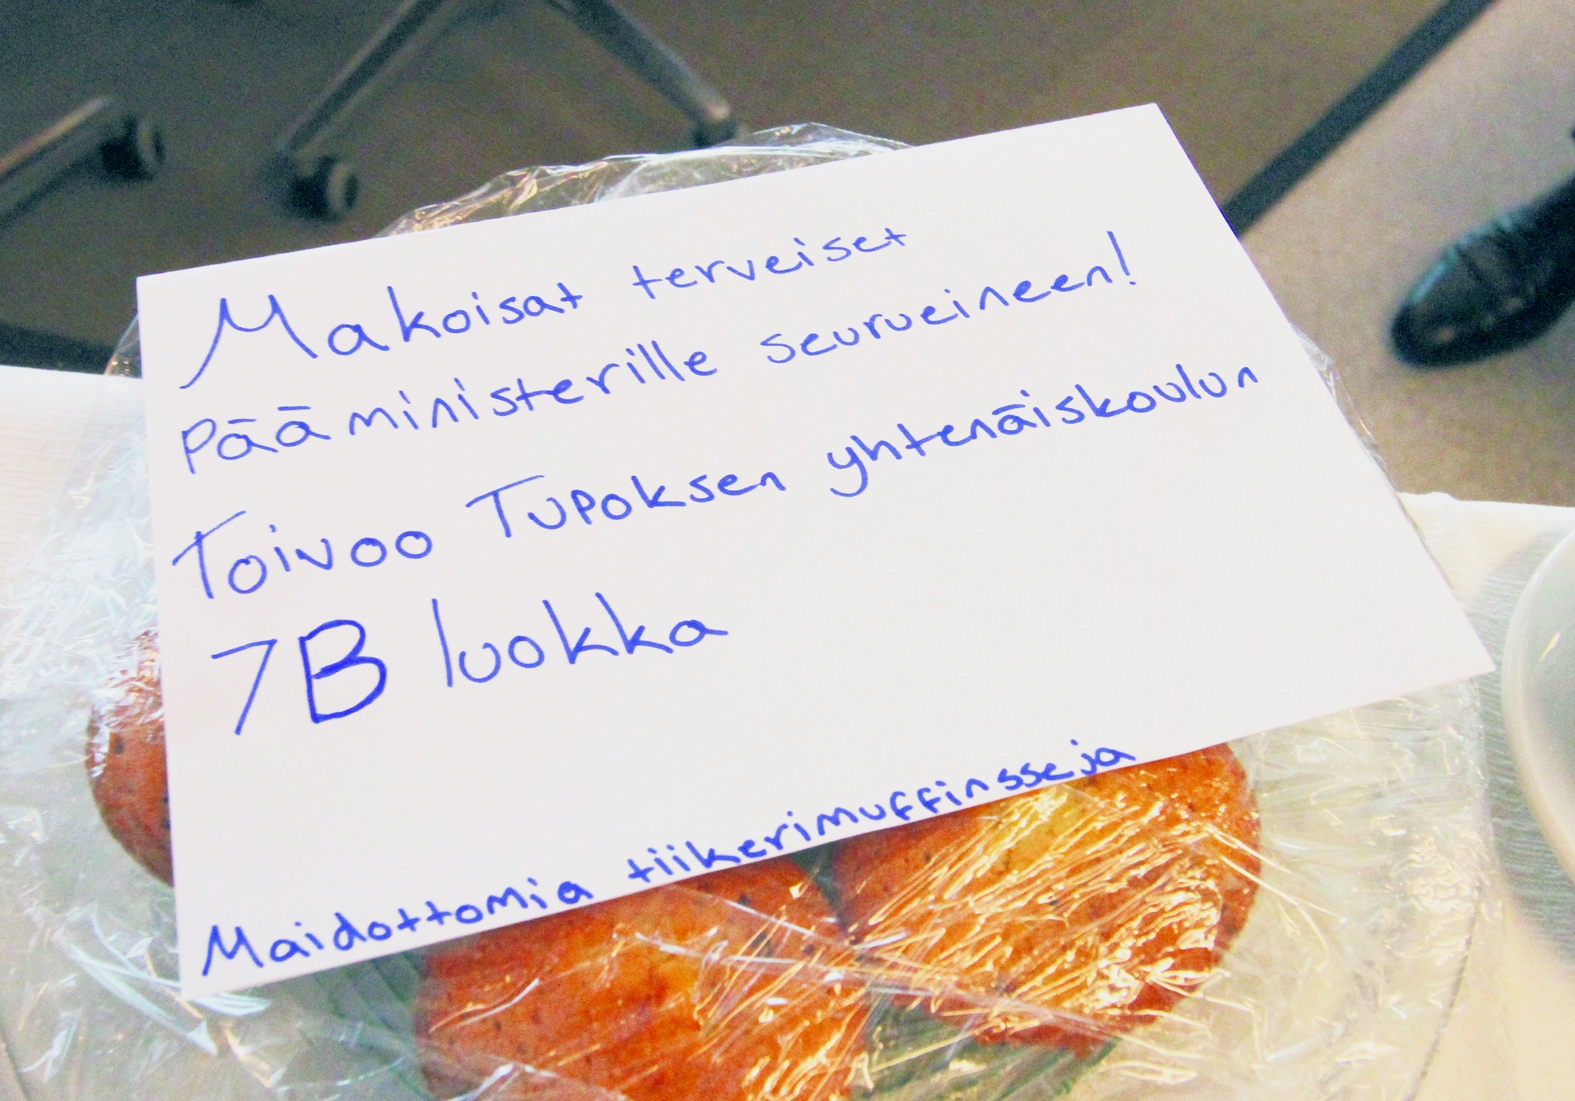 Makoisat terveiset
Pääministerille seurueineen!
Toivoo Tupoksen yhtenäiskoulun
7B luokka
Maidottomia tiikerimuffinsseja